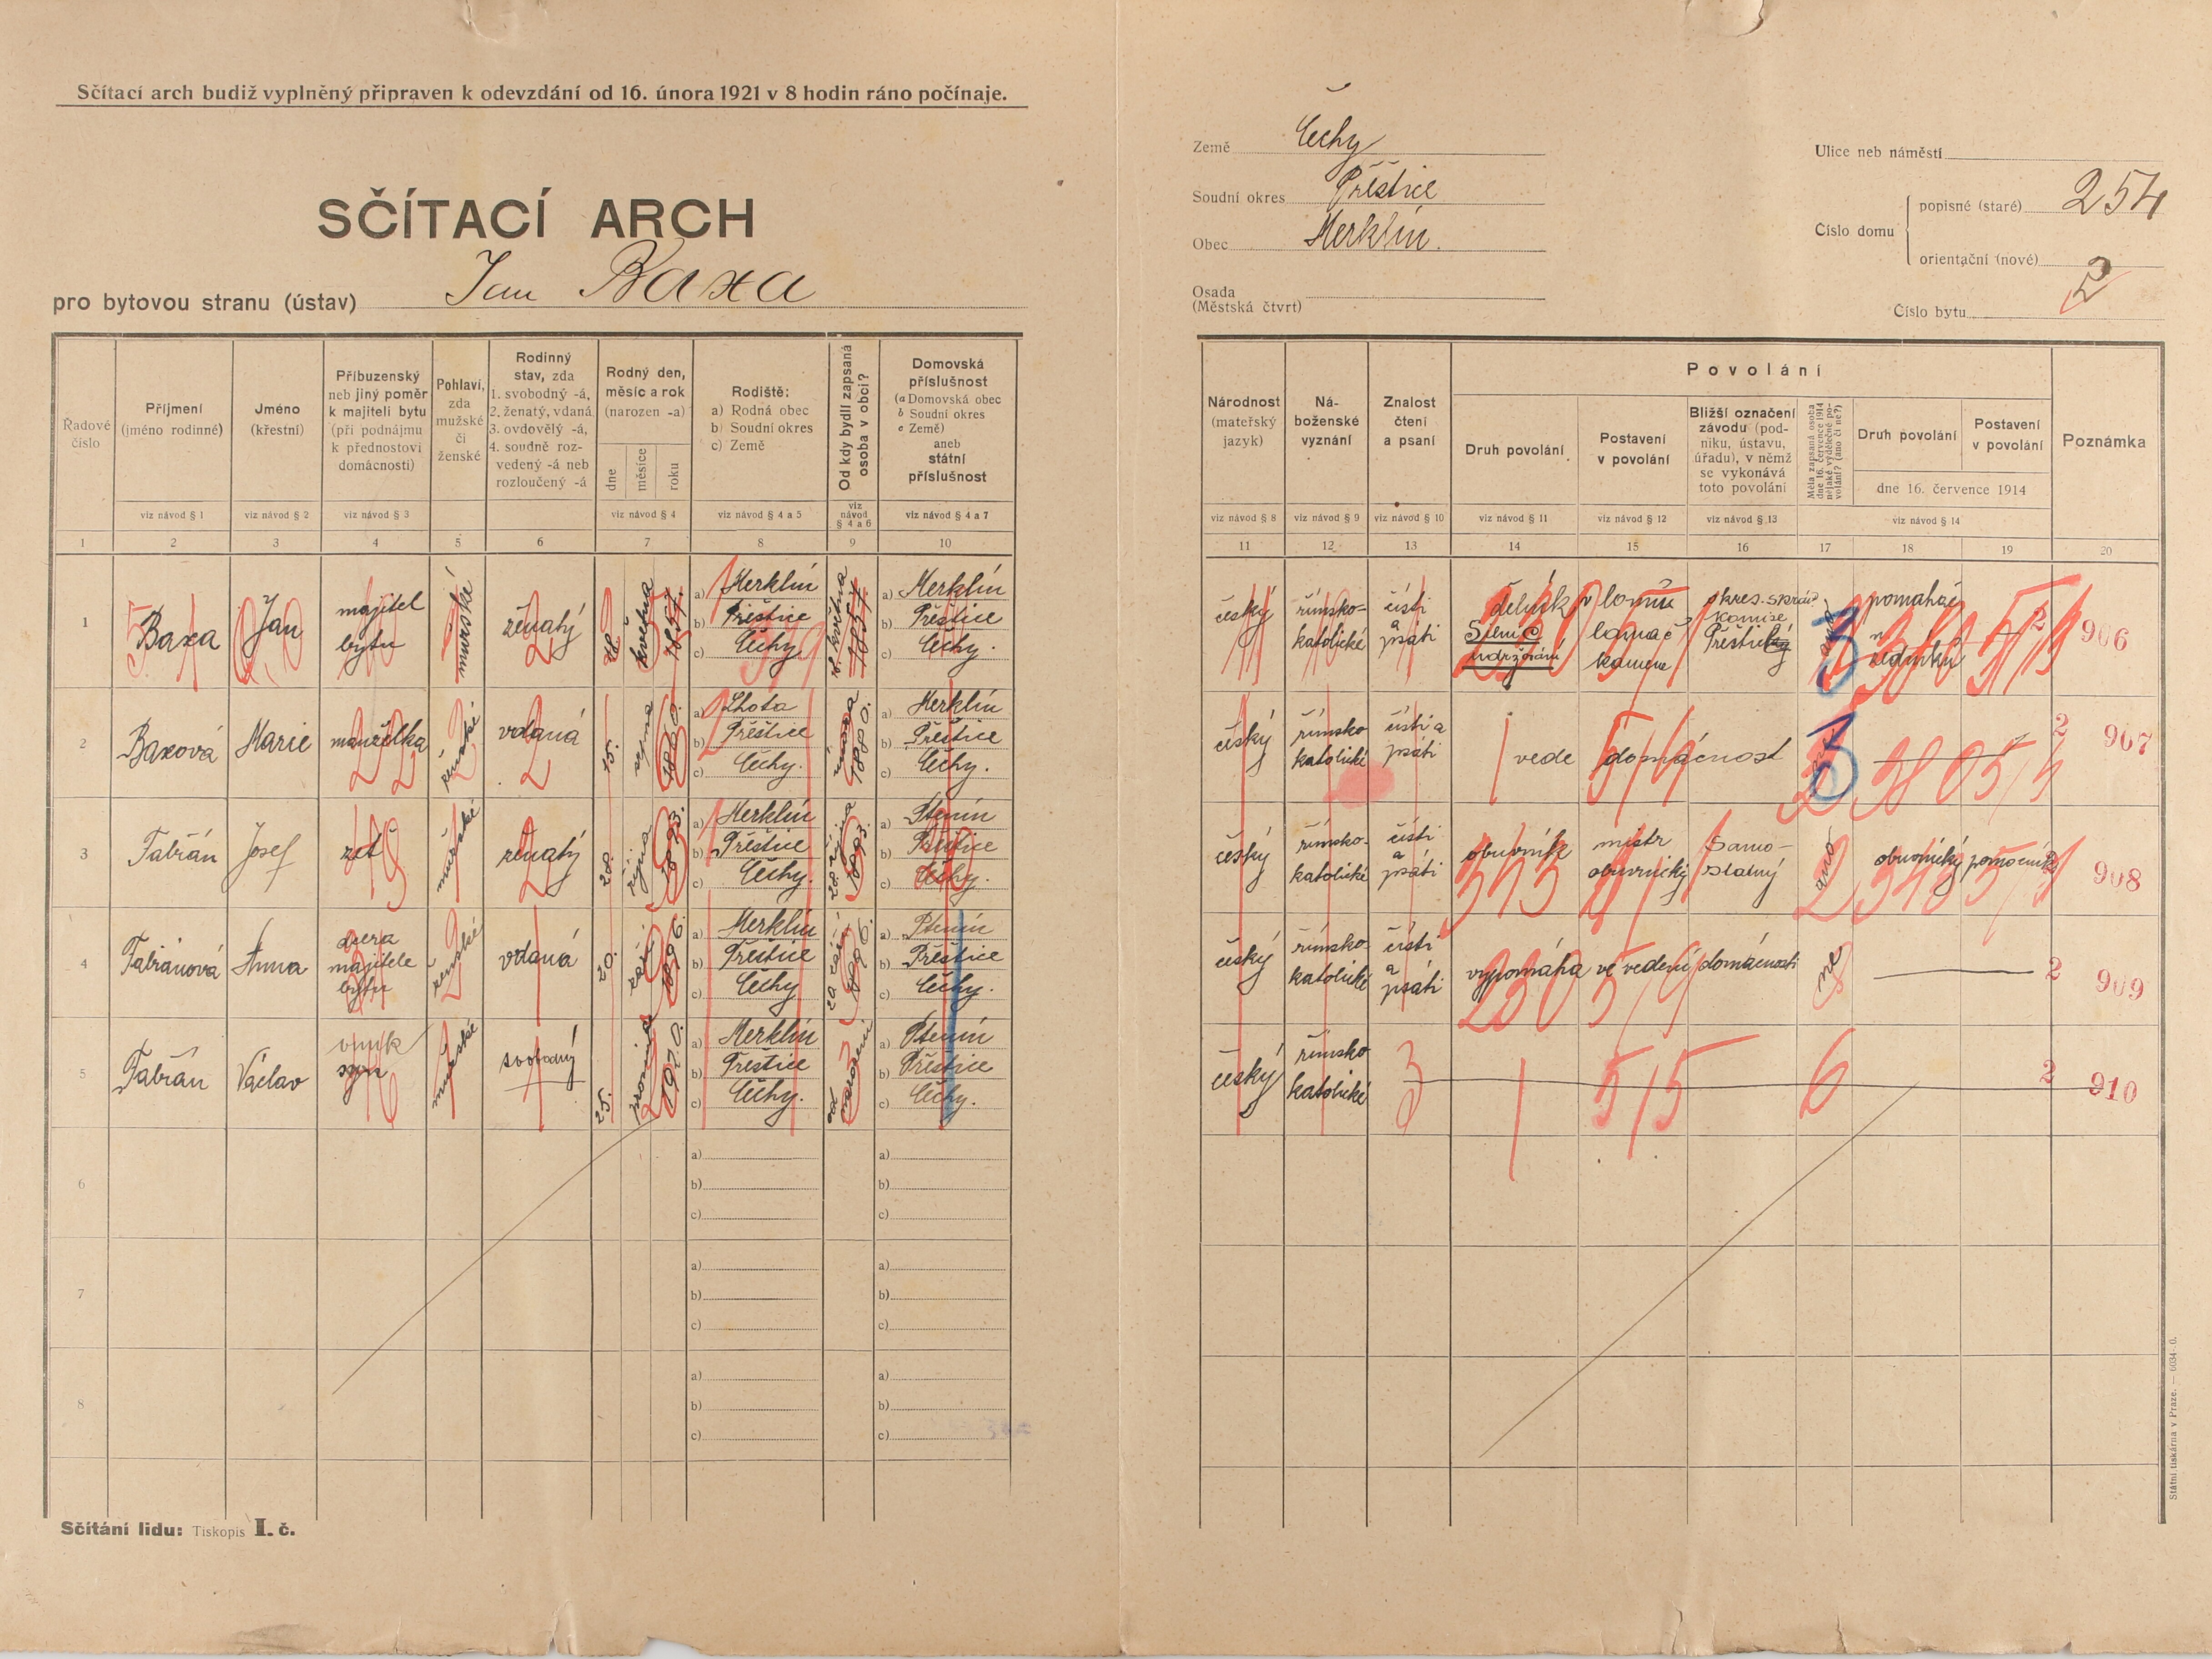 Sčítací arch budiž vyplněný připraven k odevzdání od 16. února 1921 v 8 hodin ráno počínaje.
SČÍTACÍ ARCH
pro bytovou stranu (ústav) Jan Baxa
Země Čechy
Soudní okres Přeštice
Obec Merklín.
Osada
(Městská čtvrt)
Ulice neb náměstí
Číslo domu
popisné (staré) 254
orientační (nové)
Číslo bytu 2
Řadové číslo
Příjmení (jméno rodinné)
Jméno (křestní)
Příbuzenský neb jiný poměr k majiteli bytu (při podnájmu k přednostovi domácnosti)
Pohlaví, zda mužské či ženské
Rodinný stav, zda 1. svobodný -á, 2. ženatý, vdaná 3. ovdovělý -á, 4. soudně rozvedený -á neb rozloučený -á
Rodný den, měsíc a rok (narozen -a)
dne měsíce roku
Rodiště: a) Rodná obec b) Soudní okres c) Země
Od kdy bydlí zapsaná osoba v obci?
Domovská příslušnost (a Domovská obec b Soudní okres c Země) aneb státní příslušnost
viz návod § 1 viz návod § 2 viz návod § 3 viz návod § 4 viz návod § 4 a 5 viz návod § 4 a 6 viz návod § 4 a 7
1 2 3 4 5 6 7 8 9 10
Národnost (mateřský jazyk)
Náboženské vyznání
Znalost čtení a psaní
Povolání
Druh povolání
Postavení v povolání
Bližší označení závodu (podniku, ústavu, úřadu), v němž se vykonává toto povolání
Měla zapsaná osoba dne 16. července 1914 nějaké výdělečné povolání? (ano či ne?)
Druh povolání
Postavení v povolání
dne 16. července 1914
Poznámka
viz návod § 8 viz návod § 9 viz návod § 10 viz návod § 11 viz návod § 12 viz návod § 13 viz návod § 14
11 12 13 14 15 16 17 18 19 20
1 Baxa Jan majitel bytu mužské ženatý 28 května 1857. a) Merklín b) Přeštice c) Čechy a) Merklín b) Přeštice c) Čechy.
český římsko-katolické čísti a psáti dělník v lomu lamač kamene ano pomahač zedníků 2 906
2 Baxová Marie manželka ženské vdaná 15. srpna 1860. a) Lhota b) Přeštice c) Čechy. a) Merklín b) Přeštice c) Čechy.
český římsko katolické čísti a psáti vede domácnost 2 907
3 Fabián Josef zeť mužské ženatý 20. října 1893. a) Merklín b) Přeštice c) Čechy. 20. října 1893. a) Ptenín b) Přeštice c) Čechy.
český římsko-katolické čísti a psáti obuvník mistr obuvnický Samostatný ano obuvnický pomocník 2 908
4 Fabiánová Anna dcera majitele bytu ženské vdaná 20. září 1896. a) Merklín b) Přeštice c) Čechy 20 září 1896. a) Ptenín b) Přeštice c) Čechy.
český římsko-katolické čísti a psáti vypomáhá ve vedení domácnosti ne 2 909
5 Fabián Václav vnuk syn mužské svobodný 25. prosince 1920. a) Merklín b) Přeštice c) Čechy. od narození a) Ptenín b) Přeštice c) Čechy.
český římsko katolické 3 1 5/5 6 2 910
6 a) b) c)
7 a) b) c)
8 a) b) c)
Sčítání lidu: Tiskopis I. č.
Státní tiskárna v Praze. — 6034-.0.